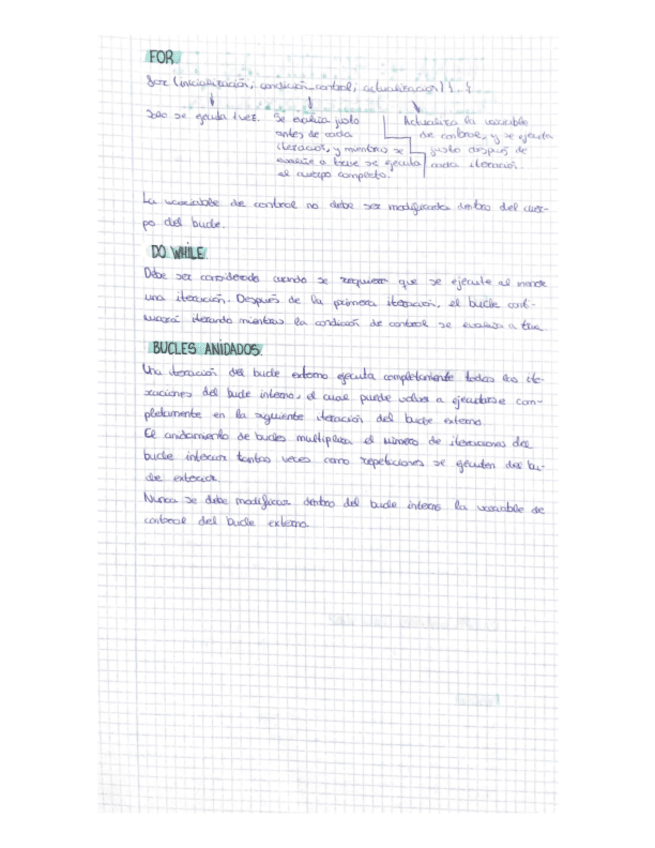 FOR
for (inicialización; condición_control; actualización) {..}
Solo se ejecuta 1 vez.
Se evalúa justo
antes de cada
iteración, y mientras se
evalúe a true se ejecuta
el cuerpo completo.
Actualiza la variable
de control, y se ejecuta
justo después de
cada iteración.
La variable de control no debe ser modificada dentro del cuer-
po del bucle.
DO WHILE
Debe ser considerado cuando se requiere que se ejecute al menos
una iteración. Después de la primera iteración, el bucle cont-
inuará iterando mientras la condición de control se evalúa a true.
BUCLES ANIDADOS.
Una iteración del bucle externo ejecuta completamente todas las ite-
raciones del bucle interno, el cual puede volver a ejecutarse com-
pletamente en la siguiente iteración del bucle externo.
El anidamiento de bucles multiplica el número de iteraciones del
bucle interior tantas veces como repeticiones se ejecuten del bu-
cle exterior.
Nunca se debe modificar dentro del bucle interno la variable de
control del bucle externo.